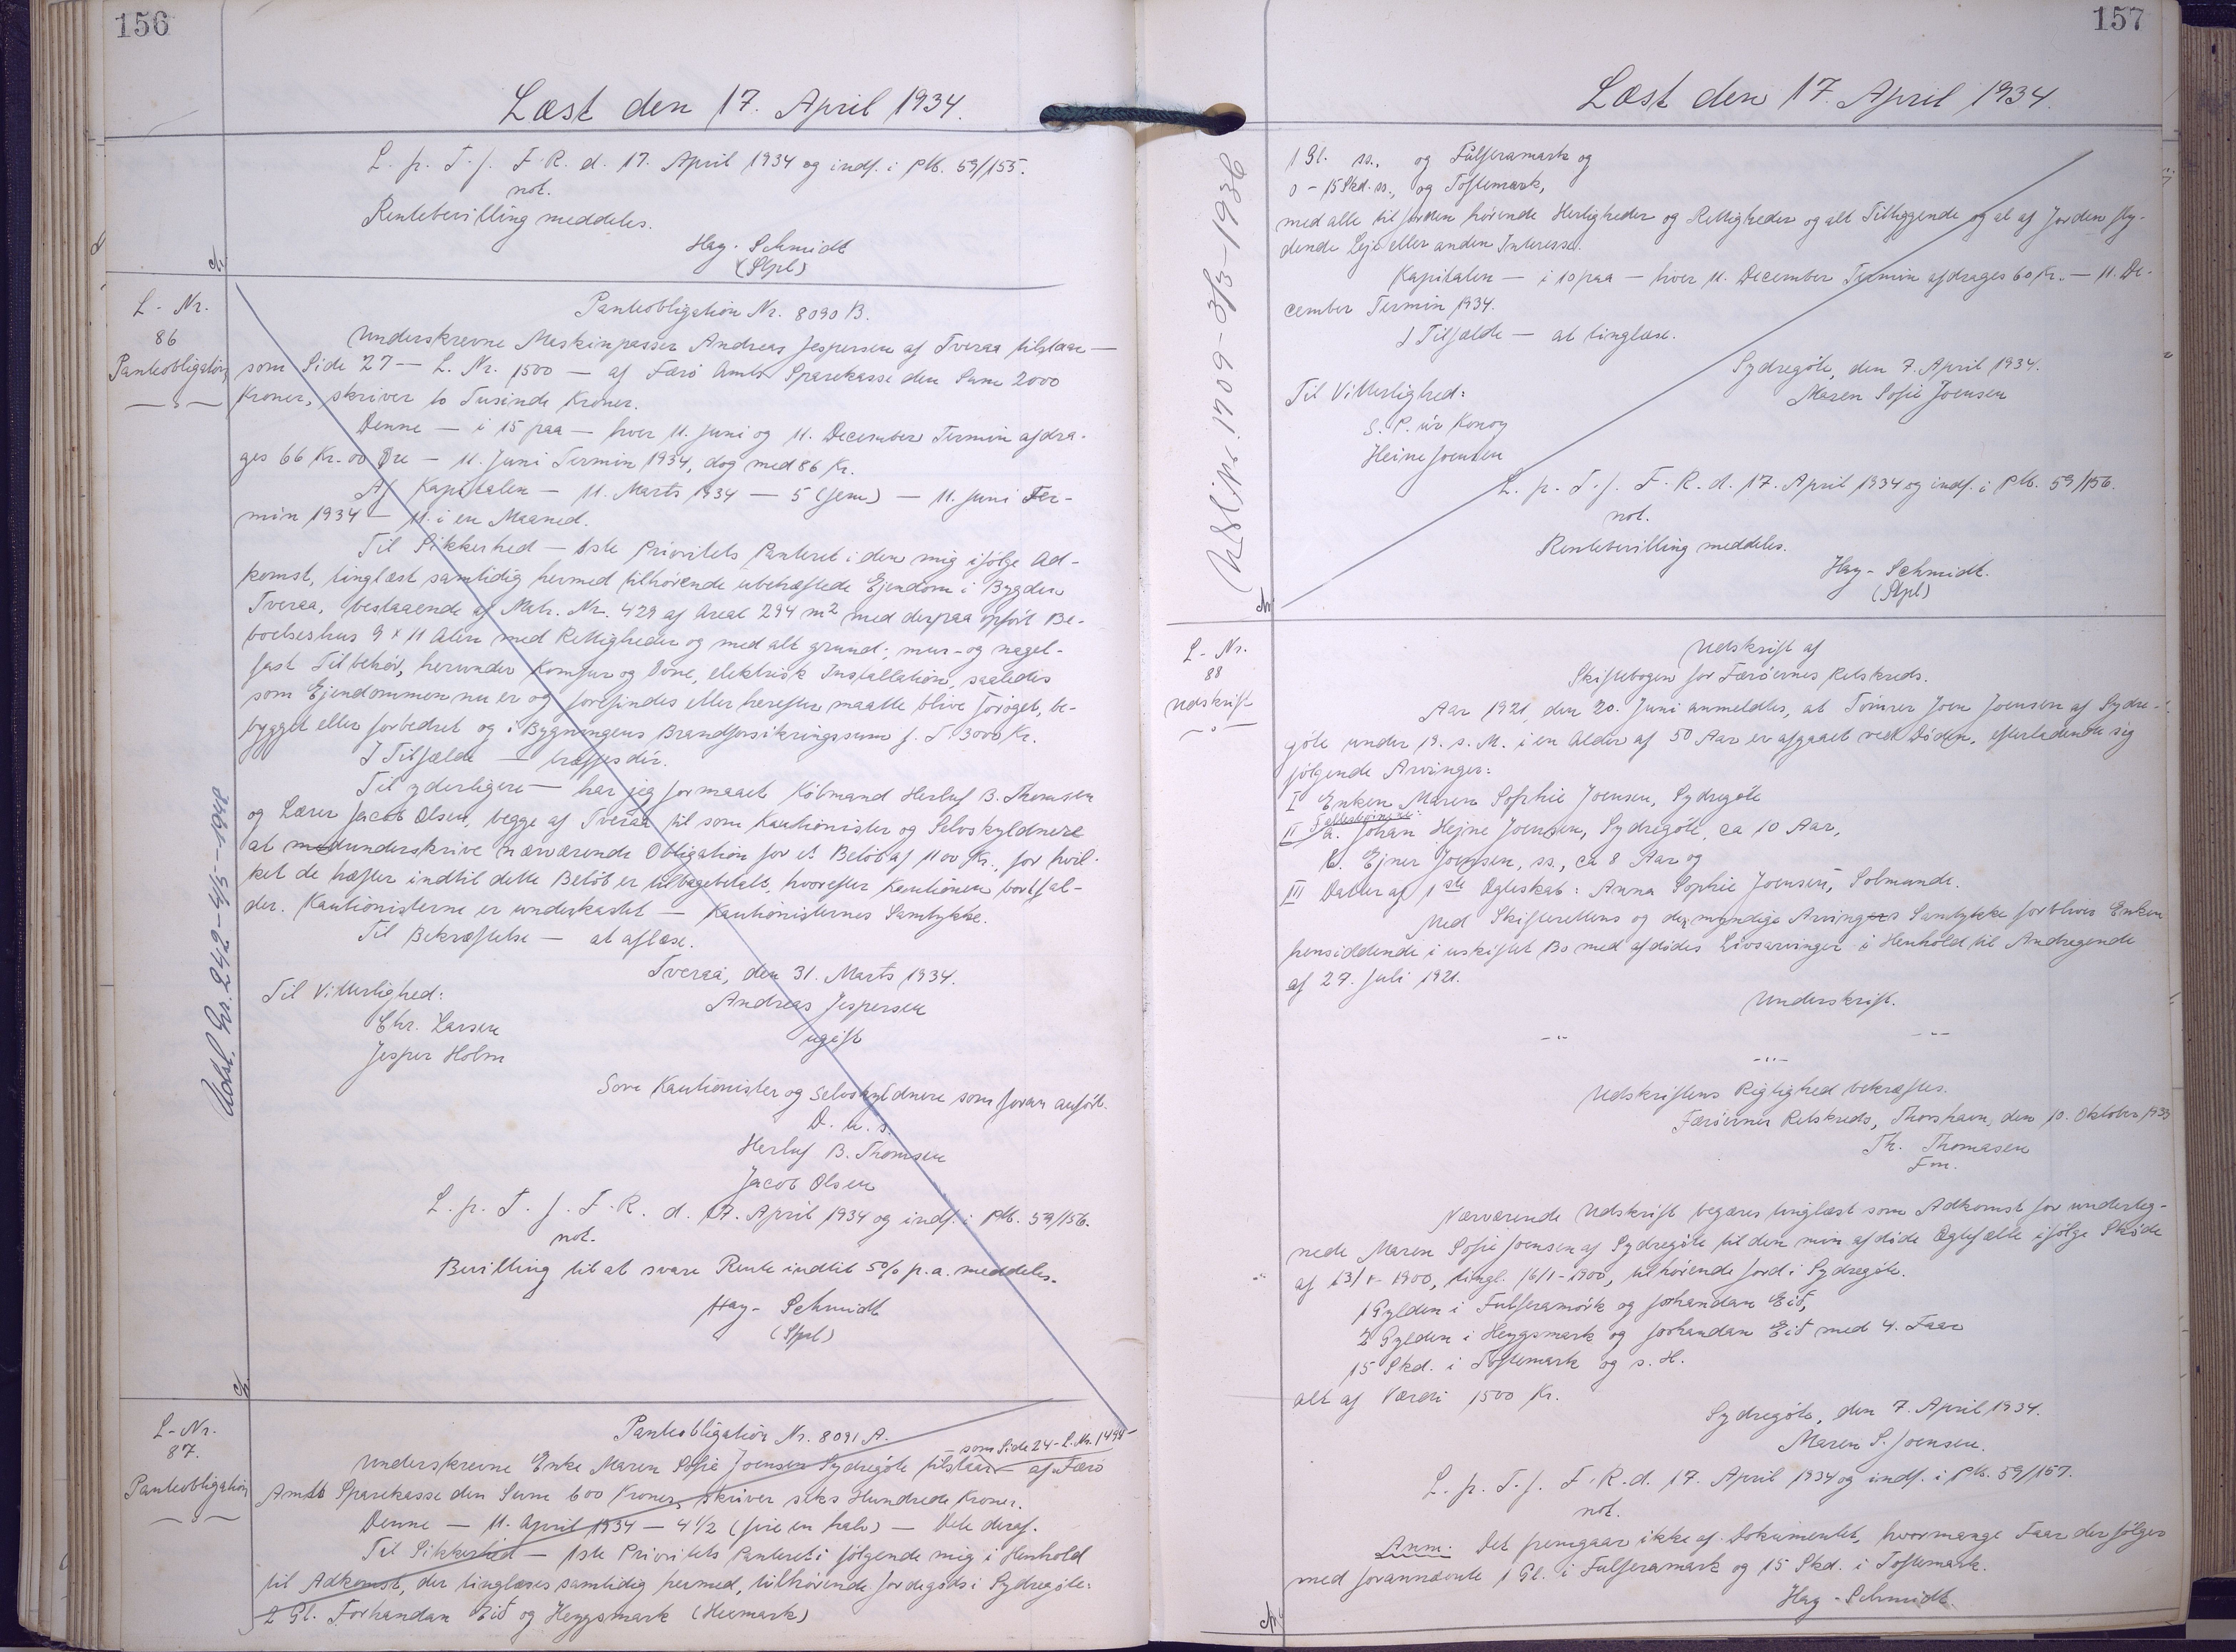 156
Læst den 17. April 1934.
L. p. T. f. F. R. d. 17. April 1934 og indf. i Ptb. 59/155.
not.
Rentebevilling meddeles.
Hay-Schmidt
(Stpl)
L-Nr.
86
Panteobligation
Panteobligation Nr. 8090 B.
Underskrevne Maskinpasser Andreas Jespersen af Tveraa tilstaar —
som Side 27 — L. Nr. 1500 — af Færø Amts Sparekasse den Sum 2000
Kroner, skriver to Tusinde Kroner.
Denne — i 15 paa — hver 11. Juni og 11. December Termin afdra-
ges 66 Kr. 00 Øre — 11. Juni Termin 1934, dog med 86 Kr.
Af Kapitalen — 11. Marts 1934 — 5 (fem) — 11. Juni Ter-
min 1934 — 11. i en Maaned.
Til Sikkerhed — 1ste Prioritets Panteret i den mig ifølge Ad-
komst, tinglæst samtidig hermed tilhørende ubehæftede Ejendom i Bygden
Tveraa, bestaaende af Matr. Nr. 429 af Areal 294 m2 med derpaa opført Be-
boelseshus 9 x 11 Alen med Rettigheder og med alt grund-, mur- og nagel-
fast Tilbehør, herunder Komfur og Ovne, elektrisk Installation, saaledes
som Ejendommen nu er og forefindes eller herefter maatte blive forøget, be-
bygget eller forbedret og i Bygningens Brandforsikringssum f. T. 3000 Kr.
I Tilfælde — træffes dér.
Til yderligere — har jeg formaaet Købmand Herluf B. Thomsen
og Lærer Jacob Olsen, begge af Tveraa til som Kautionister og Selvskyldnere
at medunderskrive nærværende Obligation for et Beløb af 1100 Kr., for hvil-
ket de hæfter indtil dette Beløb er tilbagebetalt, hvorefter Kautionen bortfal-
der. Kautionisterne er underkastet — Kautionisternes Samtykke.
Til Bekræftelse — at aflæse.
Tveraa, den 31. Marts 1934.
Til Vitterlighed:
Andreas Jespersen
Chr. Larsen
ugift
Jesper Holm
Som Kautionister og Selvskyldnere som foran anført.
D. u. s.
Herluf B. Thomsen
Jacob Olsen
L. p. T. f. F. R. d. 17. April 1934 og indf. i Ptb. 59/156.
not.
Bevilling til at svare Rente indtil 5% p.a. meddeles.
Hay-Schmidt
(Stpl)
Udsl. Lnr. 242-4/5-1948
L-Nr.
87.
Panteobligation
Panteobligation Nr. 8091 A.
— som Side 24 - L. Nr. 1499 —
Underskrevne Enke Maren Sofie Joensen Sydregøte tilstaar — af Færø
Amts Sparekasse den Sum 600 Kroner, skriver seks Hundrede Kroner.
Denne — 11. April 1934 — 4 1/2 (fire en halv) — Dele deraf.
Til Sikkerhed — 1ste Prioritets Panteret i følgende mig i Henhold
til Adkomst, der tinglæses samtidig hermed, tilhørende Jordegods i Sydregøte:
2 Gl. Forhandan Eið og Heygsmark (Heimark)
157
Læst den 17. April 1934.
1 Gl. ss., og Fulferamark og
0 - 15 Skd. ss., og Toftemark,
med alle til Jorden hørende Herligheder og Rettigheder og alt Tilliggende og al af Jorden fly-
dende Leje eller anden Interesse.
Kapitalen — i 10 paa — hver 11. December Termin afdrages 60 Kr. — 11. De-
cember Termin 1934.
I Tilfælde — at tinglæse.
Sydregøte, den 7. April 1934.
Til Vitterlighed:
Maren Sofie Joensen
S. P. úr Konoy
Heine Joensen
L. p. T. f. F. R. d. 17. April 1934 og indf. i Ptb. 59/156.
not.
Rentebevilling meddeles.
Hay-Schmidt.
(Stpl)
L-Nr.
88
Udskrift
Udskrift af
Skiftebogen for Færøernes Retskreds.
Aar 1921, den 20. Juni anmeldtes, at Tømrer Joen Joensen af Sydre-
gøte under 19. s. M. i en Alder af 50 Aar er afgaaet ved Døden, efterladende sig
følgende Arvinger:
I Enken Maren Sophie Joensen, Sydregøte
Fællesbørnene:
II a. Johan Hejne Joensen, Sydregøte, ca 10 Aar,
b. Ejner Joensen, ss., ca 8 Aar og
III Datter af 1ste Ægteskab: Anna Sophie Joensen, Solmunde.
Med Skifterettens og den myndige Arvings Samtykke forbliver Enken
hensiddende i uskiftet Bo med afdødes Livsarvinger i Henhold til Andragende
af 27. Juli 1921.
Underskrift.
Udskriftens Rigtighed bekræftes.
Færøernes Retskreds, Thorshavn, den 10. Oktober 1933
Th. Thomasen
Fm.
Nærværende Udskrift begæres tinglæst som Adkomst for underteg-
nede Maren Sofie Joensen af Sydregøte til den min afdøde Ægtefælle ifølge Skøde
af 13/1-1900, tingl. 16/1-1900, tilhørende Jord i Sydregøte.
1 Gylden i Fulferamørk og forhandan Eið,
2 Gylden i Heygsmark og forhandan Eið med 4. Faar
15 Skd. i Toftemark og s. H.
alt af Værdi 1500 Kr.
Sydregøte, den 7. April 1934.
Maren S. Joensen.
L. p. T. f. F. R. d. 17. April 1934 og indf. i Ptb. 59/157.
not.
Anm. Det fremgaar ikke af Dokumentet, hvormange Faar der følger
med forannævnte 1 Gl. i Fulferamark og 15 Skd. i Toftemark.
Hay-Schmidt.